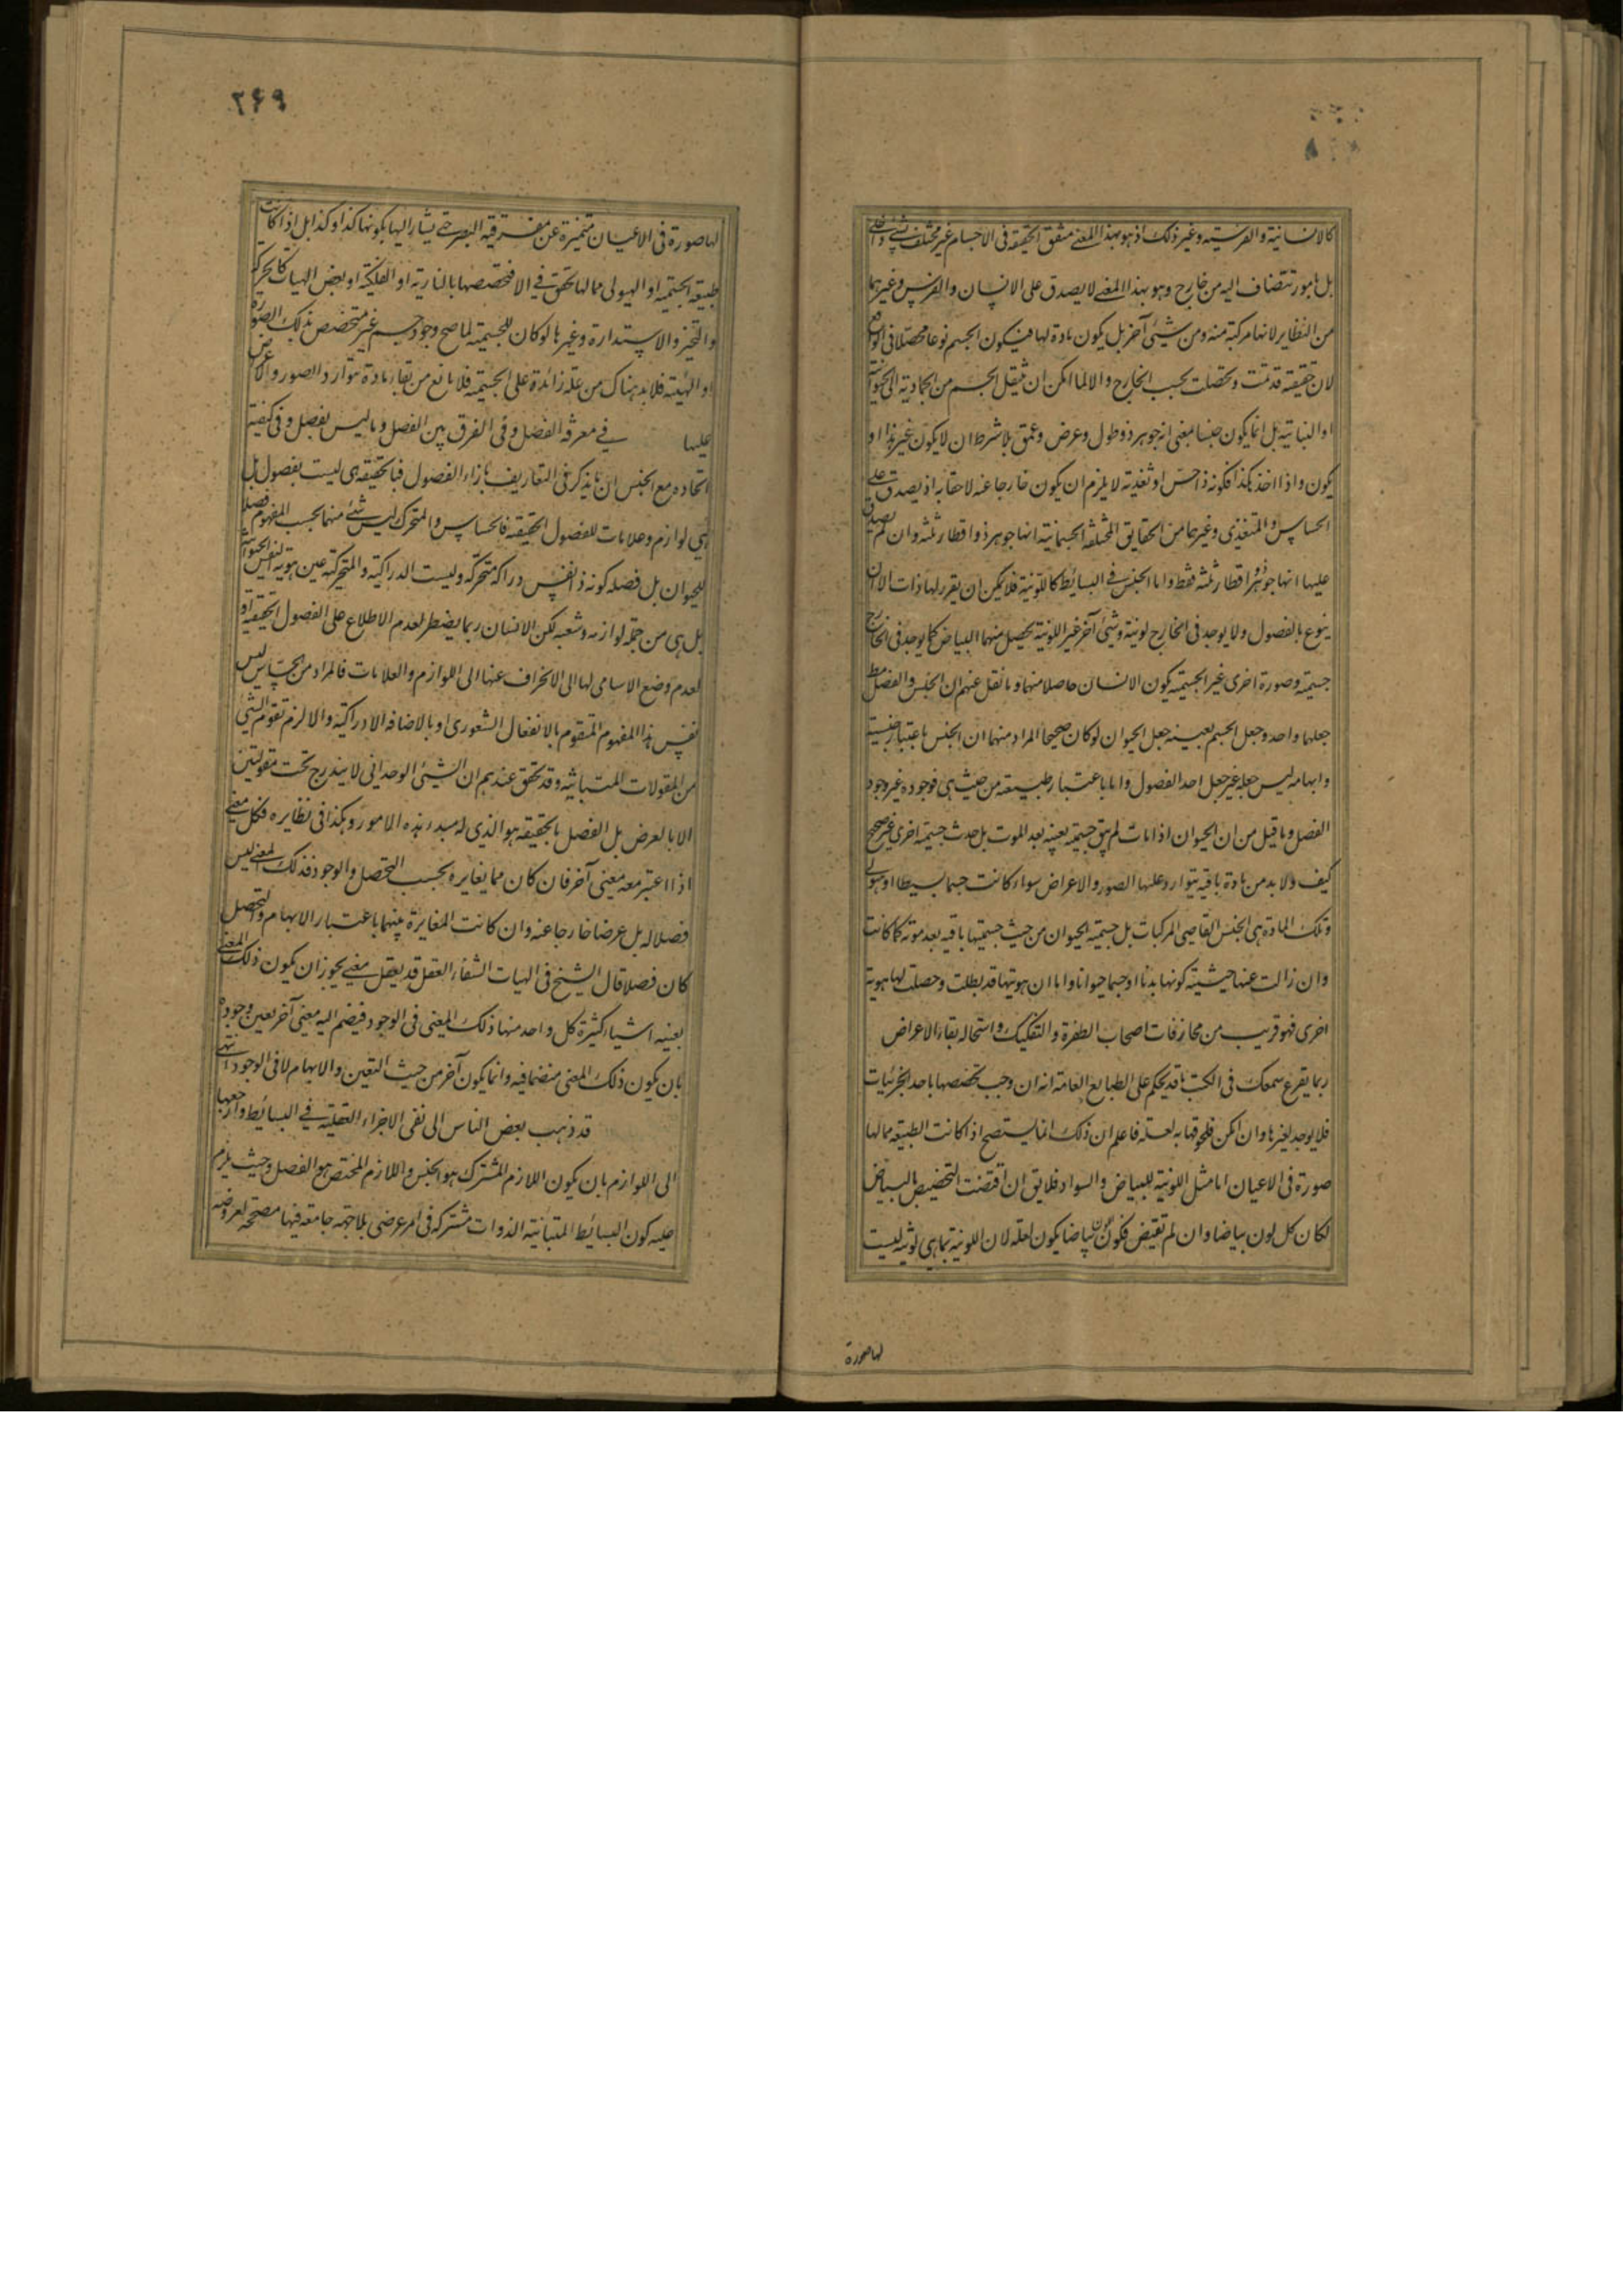 كالانسانية والفرسية وغير ذلك اذ هو بهذا المعنى متفق الحقيقة فى الاجسام غير مختلف بشئ داخل
بل بامور تنضاف اليه من خارج وهو بهذا المعنى لا يصدق على الانسان والفرس وغيرهما
من النظاير لانها مركبة منه ومن شيئى آخر بل يكون مادة لها فيكون الجسم نوعا محصلا فى الواقع
لان حقيقته قد تمت وتحصلت بحسب الخارج والا لما امكن ان ينتقل الجسم من الجمادية الى الحيوانية
او النباتية بل انما يكون جنسا بمعنى انه جوهر ذو طول وعرض وعمق بلا شرط ان لا يكون غير هذا او
يكون واذا اخذ هكذا فكونه ذا حس او تغذية لا يلزم ان يكون خارجا عنه لاحقا به اذ يصدق على
الحساس والمتغذى وغيرهما من الحقايق المختلفة الجسمانية انها جوهر ذو اقطار ثلثة وان لم يصدق
عليها انها جوهر ذو اقطار ثلثة فقط واما الجنس فى البسائط كاللونية فلا يمكن ان يقرر لها ذات الا ان
ينوع بالفصول ولا يوجد فى الخارج لونية وشئ آخر غير اللونية يحصل منهما البياض كما يوجد فى الخارج
جسمية وصورة اخرى غير الجسمية يكون الانسان حاصلا منهما وما نقل عنهم ان الجنس والفصل مط
جعلهما واحد وجعل الجسم بعينه جعل الحيوان لو كان صحيحا المراد منهما ان الجنس باعتبار جنسيته
وابهامه ليس جعله غير جعل احد الفصول واما باعتبار طبيعته من حيث هى فوجوده غير وجود
الفصل وما قيل من ان الحيوان اذا مات لم يبق جسمية بعينه بعد الموت بل حدث جسمية اخرى غير صحيح
كيف ولا بد من مادة باقية يتوارد عليها الصور والاعراض سواء كانت جسما بسيطا او هيولى
وتلك المادة هى الجنس القاصى للمركبات بل جسمية الحيوان من حيث جسميتها باقية بعد موته كما كانت
وان زالت عنها حيثية كونها بدنا او جسما حيوانا واما ان هويتها قد بطلت وحصلت لها هوية
اخرى فهو قريب من مجازفات اصحاب الطفرة والتفكيك واستحالة بقاء الاعراض
ربما يقرع سمعك فى الكتب ما قد يحكم على الطبايع العامة انه ان وجب تخصصها باحد الجزئيات
فلا يوجد لغيرها وان امكن فلحوقها به لعلة فاعلم ان ذلك انما يستصح اذا كانت الطبيعة مما لها
صورة فى الاعيان اما مثل اللونية للبياض والسواد فلا يق ان اقتضت التخصيص بالبياض
لكان كل لون بياضا وان لم تقتض فكون اللون بياضا يكون لعلة لان اللونية بما هى لونية ليست
لها صورة
٢٤٩
لها صورة فى الاعيان متميزة عن مفرقية البصر حتى يشار اليها بكونها كذا وكذا بل اذا كانت
طبيعة الجسمية او الهيولى مما لها تحقق فى الا فتخصصها بالنارية او الفلكية او بعض الهيات كالحركة
والتحيز والاستدارة وغيرها لو كان للجسمية لما صح وجود جسم غير متخصص بذلك الصورة
او الهيئة فلا بد هناك من علة زائدة على الجسمية فلا مانع من بقاء مادة توارد الصور والاعراض
عليها فى معرفة الفصل وفى الفرق بين الفصل وما ليس بفصل وفى كيفية
اتحاده مع الجنس ان ما يذكر فى التعاريف بازاء الفصول فبالحقيقة هى ليست بفصول بل
هى لوازم وعلامات للفصول الحقيقة فالحساس والمتحرك ليس شئ منهما بحسب المفهوم فصلا
للحيوان بل فصله كونه ذا نفس دراكة متحركة وليست الدراكية والمتحركية عين هوية النفس الحيوانية
بل هى من جملة لوازمه وشعبه لكن الانسان ربما يضطر لعدم الاطلاع على الفصول الحقيقية او
لعدم وضع الاسامى لها الى الانحراف عنها الى اللوازم والعلامات فالمراد من الحساس ليس
نفس هذا المفهوم المتقوم بالانفعال الشعورى او بالاضافة الادراكية والا لزم تقوم الشئ
من المقولات المتباينة وقد تحقق عندهم ان الشيئ الوحدانى لا يندرج تحت مقولتين
الا بالعرض بل الفصل بالحقيقة هو الذى له مبدء هذه الامور وهكذا فى نظايره فكل معنى
اذا اعتبر معه معنى آخر فان كان مما يغايره بحسب التحصل والوجود فذلك المعنى ليس
فصلا له بل عرضا خارجا عنه وان كانت المغايرة بينهما باعتبار الابهام والتحصل
كان فصلا قال الشيخ فى الهيات الشفاء العقل قد يعقل معنى يجوز ان يكون ذلك المعنى
بعينه اشياء كثيرة كل واحد منها ذلك المعنى فى الوجود فيضم اليه معنى آخر يعين وجوده
بان يكون ذلك المعنى متضمنا فيه وانما يكون آخر من حيث التعين والابهام لا فى الوجود انتهى
قد ذهب بعض الناس الى نفى الاجزاء العقلية فى البسائط وارجعها
الى اللوازم بان يكون اللازم المشترك هو الجنس واللازم المختص هو الفصل وحيث يلزم
عليه كون البسائط المتباينة الذوات مشتركة فى امر عرضى بلا جهة جامعة فيها مصححة لعروضه